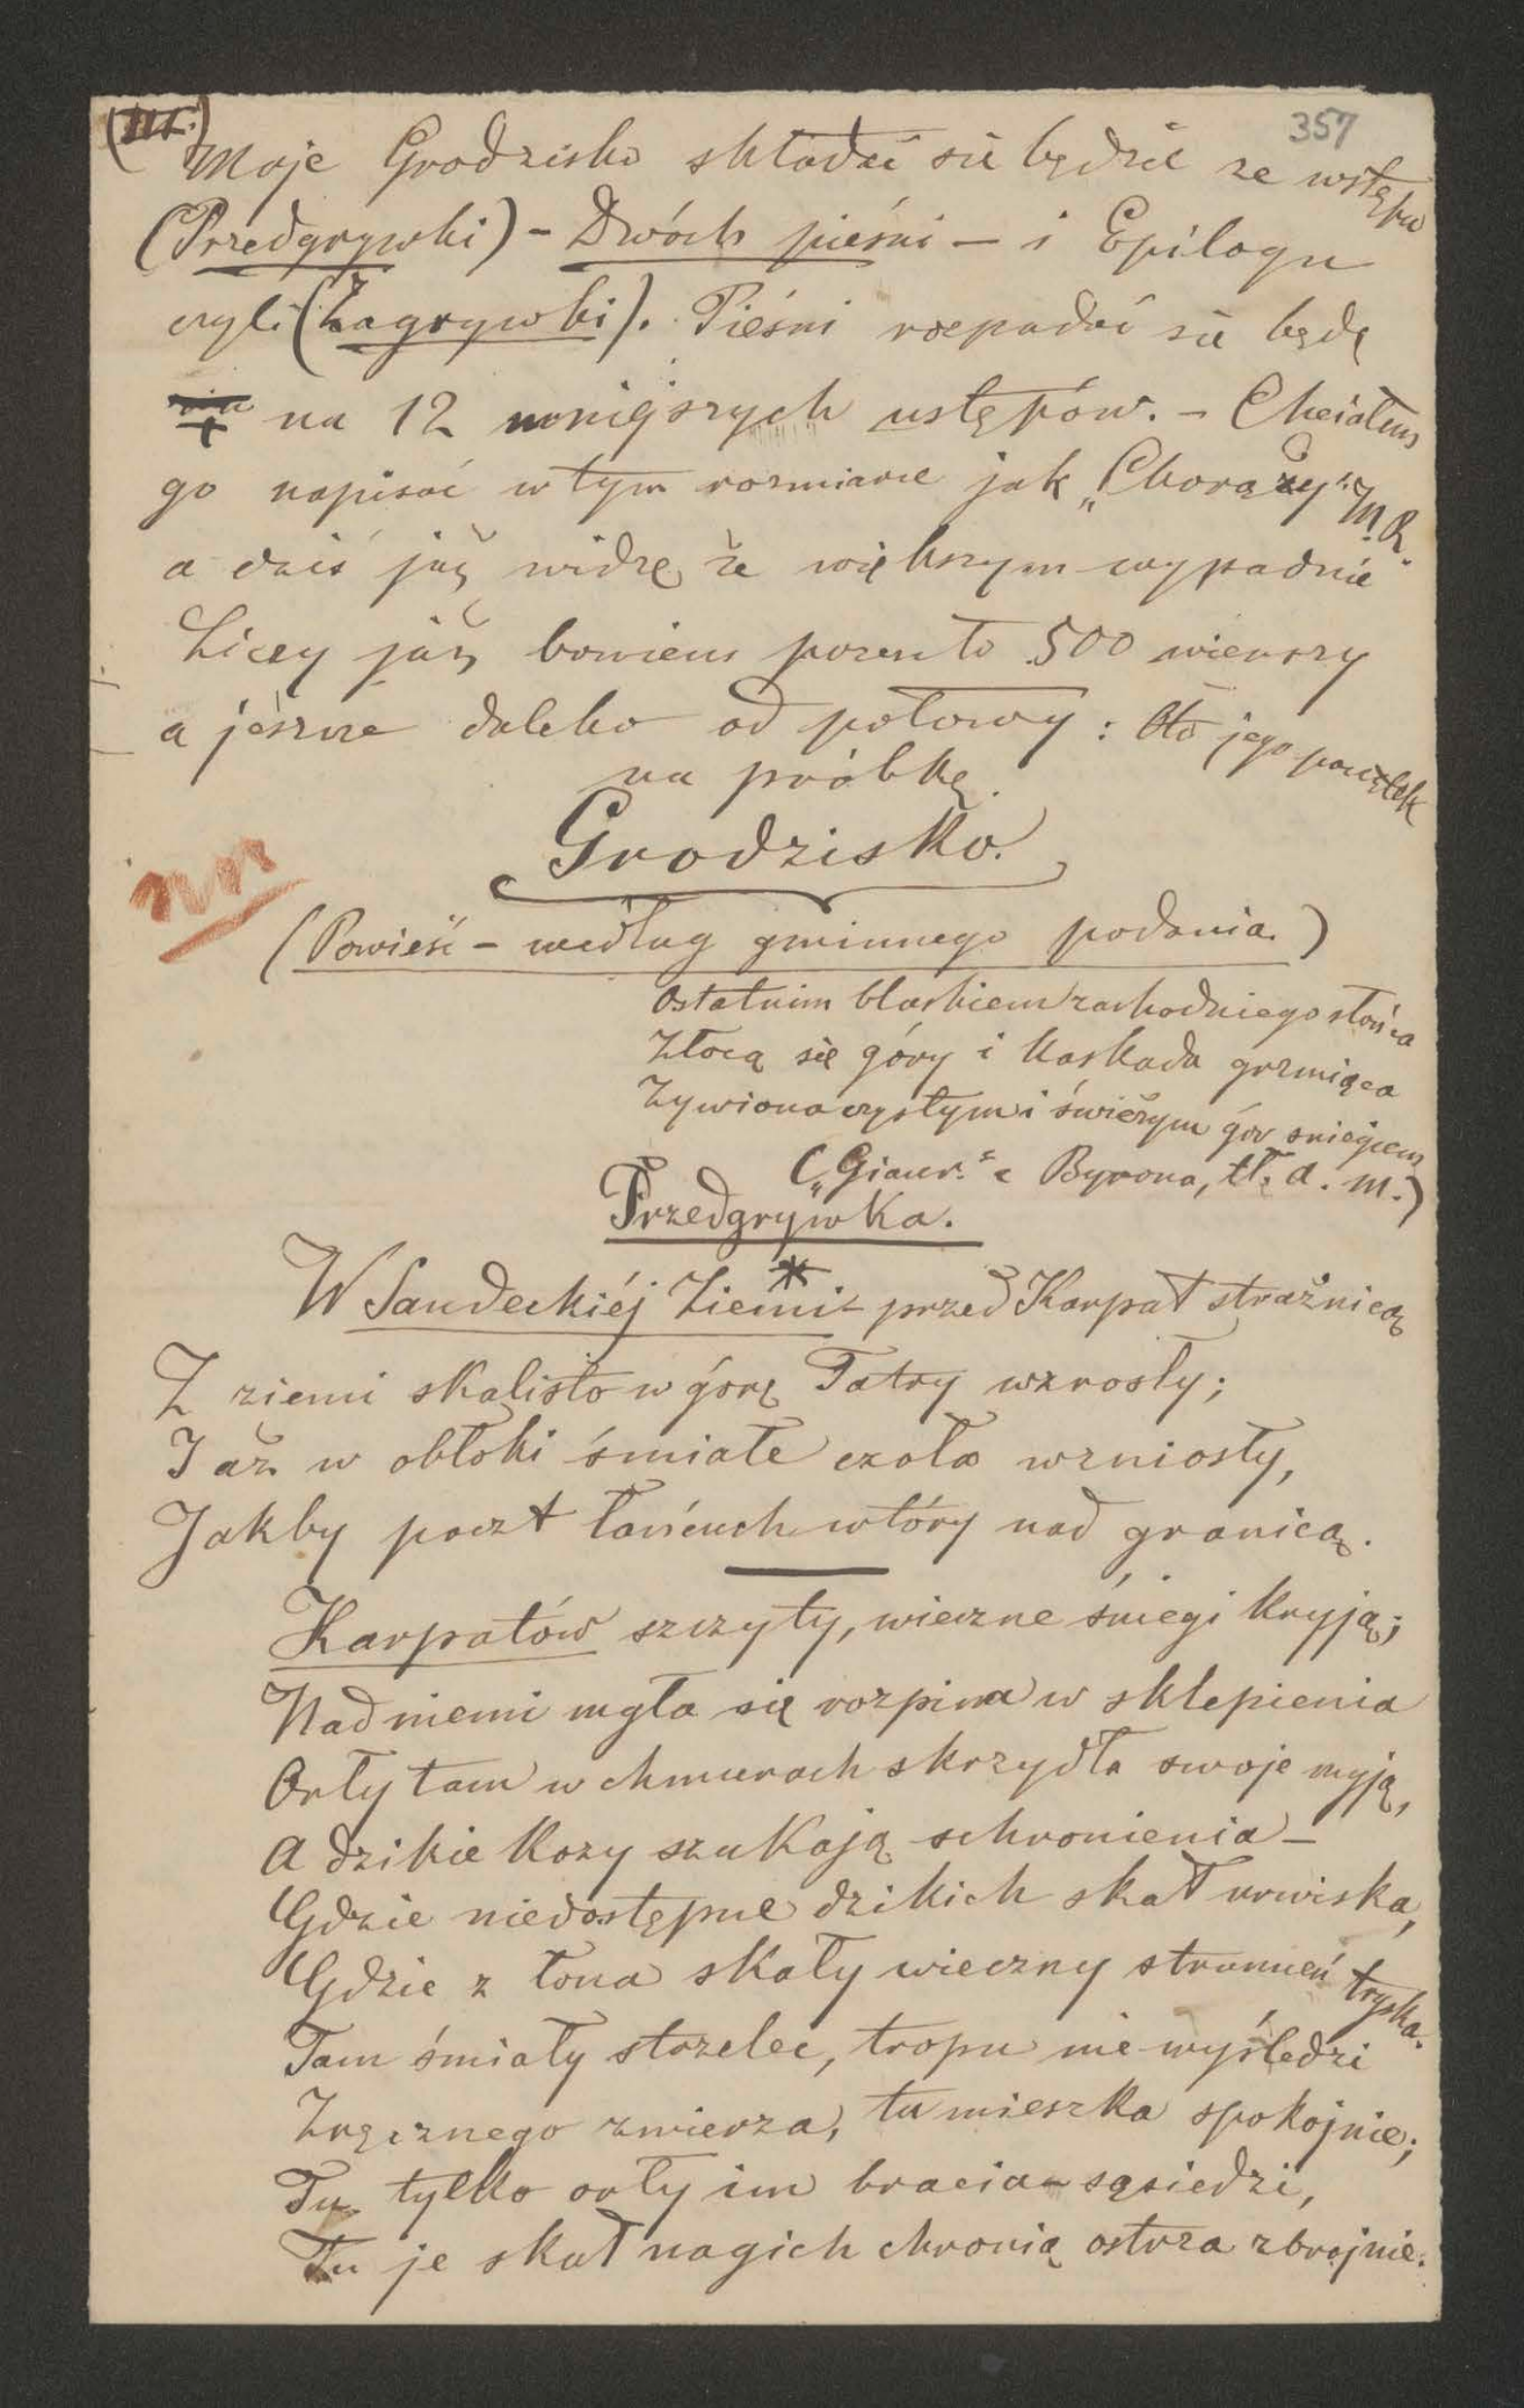 (III.) 357
Moje Grodzisko składać się będzie ze wstępu
(Przedgrywki) – Dwóch pieśni – i Epilogu
czyli (Zagrywki). Pieśni rozpadać się będą
na 12 mniejszych ustępów. – Chciałem
go napisać w tym rozmiarze jak „Chorąży" M. R.
a dziś już widzę że większym wypadnie
Liczy już bowiem przeszło 500 wierszy
a jeszcze daleko od połowy: Oto jego początek
na próbkę.
Grodzisko.
nn
(Powieść – według gminnego podania.)
Ostatnim blaskiem zachodniego słońca
Złocą się góry i kaskada grzmiąca
Żywiona czystym i świeżym gór sniegiem
(„Giaur." Byrona, tł. a. m.)
Przedgrywka.
*
W Sandeckiéj Ziemi – przed Karpat strażnicą
Z ziemi skalisto w górę Tatry wzrosły;
I aż w obłoki śmiałe czoła wzniosły,
Jakby poczt łańcuch wtóry nad granicą.
Karpatów szczyty, wieczne śniegi kryją;
Nad niemi mgła się rozpina w sklepienia
Orły tam w chmurach skrzydła swoje myją,
A dzikie kozy szukają schronienia –
Gdzie niedostępne dzikich skał urwiska,
Gdzie z łona skały wieczny strumień tryska.
Tam śmiały strzelec, tropu nie wyśledzi
Zręcznego zwierza, tu mieszka spokojnie;
Tu tylko orły im bracia – sąsiedzi,
Tu je skał nagich chronią ostrza zbrojnie.